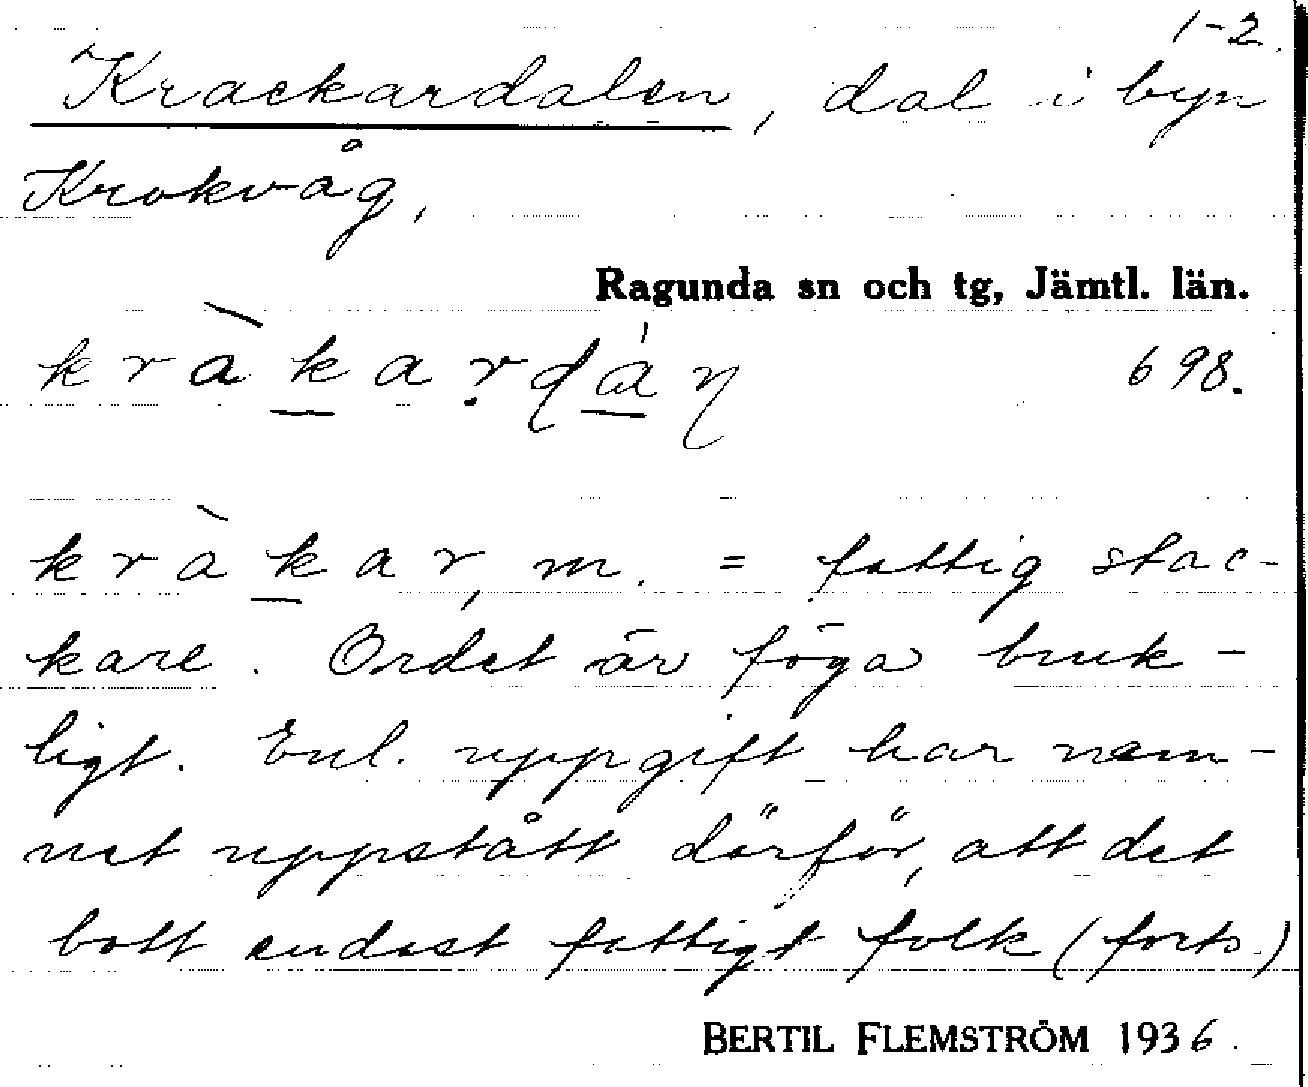 1-2.
Krackardalen, dal i byn
Krokvåg,
Ragunda sn och tg, Jämtl. län.
kràkaṛdán 698.
kràkar, m. = fattig stac-
kare. Ordet är föga bruk-
ligt. Enl. uppgift har nam-
net uppstått därför, att det
bott endast fattigt folk (forts.)
BERTIL FLEMSTRÖM 1936.